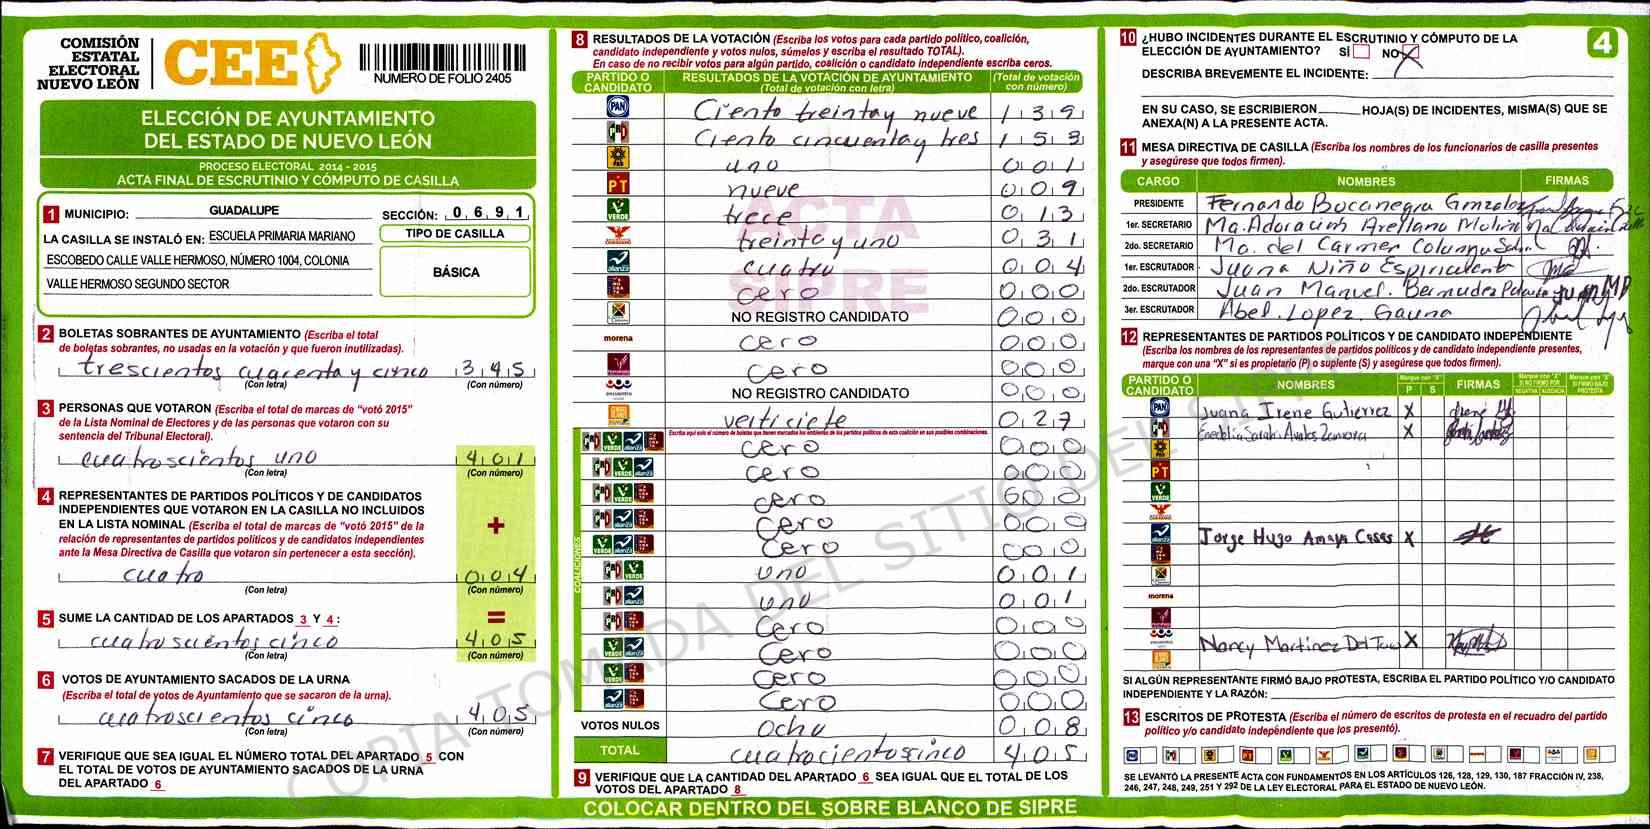 COMISIÓN
ESTATAL
ELECTORAL
NUEVO LEÓN
CEE
NUMERO DE FOLIO 2405
ELECCIÓN DE AYUNTAMIENTO
DEL ESTADO DE NUEVO LEÓN
PROCESO ELECTORAL 2014 - 2015
ACTA FINAL DE ESCRUTINIO Y CÓMPUTO DE CASILLA
1 MUNICIPIO: GUADALUPE SECCIÓN: 0 6 9 1
LA CASILLA SE INSTALÓ EN: ESCUELA PRIMARIA MARIANO
ESCOBEDO CALLE VALLE HERMOSO, NÚMERO 1004, COLONIA
VALLE HERMOSO SEGUNDO SECTOR
TIPO DE CASILLA
BÁSICA
2 BOLETAS SOBRANTES DE AYUNTAMIENTO (Escriba el total
de boletas sobrantes, no usadas en la votación y que fueron inutilizadas).
trescientos cuarenta y cinco 3 4 5
(Con letra) (Con número)
3 PERSONAS QUE VOTARON (Escriba el total de marcas de "votó 2015"
de la Lista Nominal de Electores y de las personas que votaron con su
sentencia del Tribunal Electoral).
cuatroscientos uno 4 0 1
(Con letra) (Con número)
4 REPRESENTANTES DE PARTIDOS POLÍTICOS Y DE CANDIDATOS
INDEPENDIENTES QUE VOTARON EN LA CASILLA NO INCLUIDOS
EN LA LISTA NOMINAL (Escriba el total de marcas de "votó 2015" de la
relación de representantes de partidos políticos y de candidatos independientes
ante la Mesa Directiva de Casilla que votaron sin pertenecer a esta sección).
+
cuatro 0 0 4
(Con letra) (Con número)
=
5 SUME LA CANTIDAD DE LOS APARTADOS 3 Y 4 :
cuatroscientos cinco 4 0 5
(Con letra) (Con número)
6 VOTOS DE AYUNTAMIENTO SACADOS DE LA URNA
(Escriba el total de votos de Ayuntamiento que se sacaron de la urna).
cuatroscientos cinco 4 0 5
(Con letra) (Con número)
7 VERIFIQUE QUE SEA IGUAL EL NÚMERO TOTAL DEL APARTADO 5 CON
EL TOTAL DE VOTOS DE AYUNTAMIENTO SACADOS DE LA URNA
DEL APARTADO 6
8 RESULTADOS DE LA VOTACIÓN (Escriba los votos para cada partido político, coalición,
candidato independiente y votos nulos, súmelos y escriba el resultado TOTAL).
En caso de no recibir votos para algún partido, coalición o candidato independiente escriba ceros.
PARTIDO O CANDIDATO RESULTADOS DE LA VOTACIÓN DE AYUNTAMIENTO (Total de votación con letra) (Total de votación con número)
PAN Ciento treinta y nueve 1 3 9
PRD Ciento cincuenta y tres 1 5 3
PRD uno 0 0 1
PT nueve 0 0 9
VERDE trece 0 1 3
treinta y uno 0 3 1
alianza cuatro 0 0 4
cero 0 0 0
NO REGISTRO CANDIDATO 0 0 0
morena cero 0 0 0
cero 0 0 0
encuentro NO REGISTRO CANDIDATO 0 0 0
venticiete 0 2 7
Escriba aquí solo el número de boletas que tienen marcados los emblemas de los partidos políticos de esta coalición en sus posibles combinaciones.
COALICIONES
cero 0 0 0
cero 0 0 0
cero 0 0 0
cero 0 0 0
cero 0 0 0
uno 0 0 1
uno 0 0 1
cero 0 0 0
cero 0 0 0
cero 0 0 0
cero 0 0 0
VOTOS NULOS ocho 0 0 8
TOTAL cuatrocientos cinco 4 0 5
9 VERIFIQUE QUE LA CANTIDAD DEL APARTADO 6 SEA IGUAL QUE EL TOTAL DE LOS
VOTOS DEL APARTADO 8
ACTA
SIPRE
COPIA TOMADA DEL SITIO DEL
COLOCAR DENTRO DEL SOBRE BLANCO DE SIPRE
4
10 ¿HUBO INCIDENTES DURANTE EL ESCRUTINIO Y CÓMPUTO DE LA
ELECCIÓN DE AYUNTAMIENTO? SÍ NO X
DESCRIBA BREVEMENTE EL INCIDENTE:
EN SU CASO, SE ESCRIBIERON HOJA(S) DE INCIDENTES, MISMA(S) QUE SE
ANEXA(N) A LA PRESENTE ACTA.
11 MESA DIRECTIVA DE CASILLA (Escriba los nombres de los funcionarios de casilla presentes
y asegúrese que todos firmen).
CARGO NOMBRES FIRMAS
PRESIDENTE Fernando Bocanegra Gonzalez
1er. SECRETARIO Ma. Adoracion Arellano Molina
2do. SECRETARIO Ma. del Carmen Colunga
1er. ESCRUTADOR Juana Niño
2do. ESCRUTADOR Juan Manuel. Bermudez
3er. ESCRUTADOR Abel. Lopez. Gauna
12 REPRESENTANTES DE PARTIDOS POLÍTICOS Y DE CANDIDATO INDEPENDIENTE
(Escriba los nombres de los representantes de partidos políticos y de candidato independiente presentes,
marque con una "X" si es propietario (P) o suplente (S) y asegúrese que todos firmen).
PARTIDO O CANDIDATO NOMBRES Marque con "X" P S FIRMAS Marque con "X" SI NO FIRMÓ POR: NEGATIVA AUSENCIA Marque con "X" SI FIRMÓ BAJO PROTESTA
PAN Juana Irene Gutierrez X
Sarahi Avalos Zamora X
PRD
PT
VERDE
alianza Jorge Hugo Amaya Casas X
morena
encuentro
Nancy Martinez Del X
SI ALGÚN REPRESENTANTE FIRMÓ BAJO PROTESTA, ESCRIBA EL PARTIDO POLÍTICO Y/O CANDIDATO
INDEPENDIENTE Y LA RAZÓN:
13 ESCRITOS DE PROTESTA (Escriba el número de escritos de protesta en el recuadro del partido
político y/o candidato independiente que los presentó).
SE LEVANTÓ LA PRESENTE ACTA CON FUNDAMENTOS EN LOS ARTÍCULOS 126, 128, 129, 130, 187 FRACCIÓN IV, 238,
246, 247, 248, 249, 251 Y 292 DE LA LEY ELECTORAL PARA EL ESTADO DE NUEVO LEÓN.